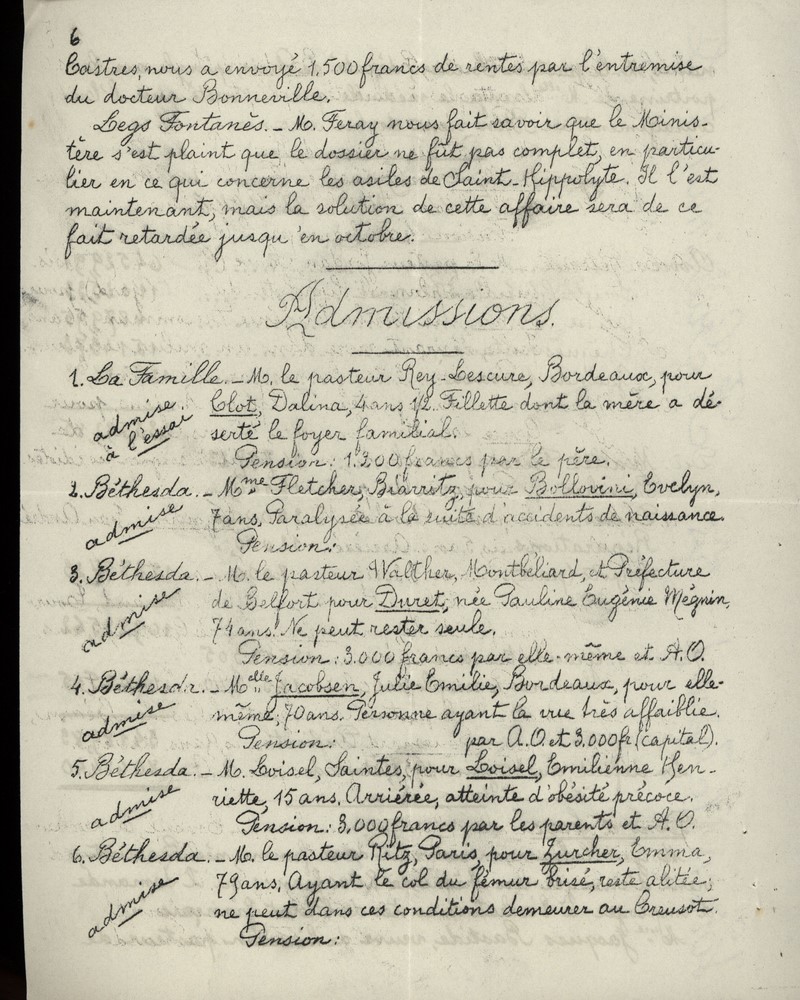 6
Castres, nous a envoyé 1.500 francs de rentes par l'entremise
du docteur Bonneville.
Legs Fontanès. - M. Feray nous fait savoir que le Minis-
tère s'est plaint que le dossier ne fût pas complet, en particu-
lier en ce qui concerne les asiles de Saint-Hippolyte. Il l'est
maintenant, mais la solution de cette affaire sera de ce
fait retardée jusqu'en octobre.
Admissions.
1. La Famille. - M. le pasteur Rey-Lescure, Bordeaux, pour
admise à l'essai
Clot, Dalina, 4 ans 1/2. Fillette dont la mère a dé-
serté le foyer familial.
Pension : 1.200 francs par le père.
2. Béthesda. - Mme Fletcher, Biarritz, pour Bollovini, Evelyn,
admise
7 ans. Paralysée à la suite d'accidents de naissance.
Pension :
3. Béthesda. - M. le pasteur Walther, Montbéliard, et Préfecture
admise
de Belfort pour Duret, née Pauline Eugénie Mégnin,
74 ans. Ne peut rester seule.
Pension : 3.000 francs par elle-même et A.O.
4. Béthesda. - Melle Jacobsen, Julie Emilie, Bordeaux, pour elle-
admise
même, 70 ans. Personne ayant la vue très affaiblie.
Pension : par A.O. et 3.000 fr (capital).
5. Béthesda. - M. Loisel, Saintes, pour Loisel, Emilienne Hen-
admise
riette, 15 ans. Arriérée, atteinte d'obésité précoce.
Pension : 3.000 francs par les parents et A.O.
6. Béthesda. - M. le pasteur Ritz, Paris, pour Zurcher, Emma,
admise
79 ans. Ayant le col du fémur brisé, reste alitée ;
ne peut dans ces conditions demeurer au Creusot.
Pension :